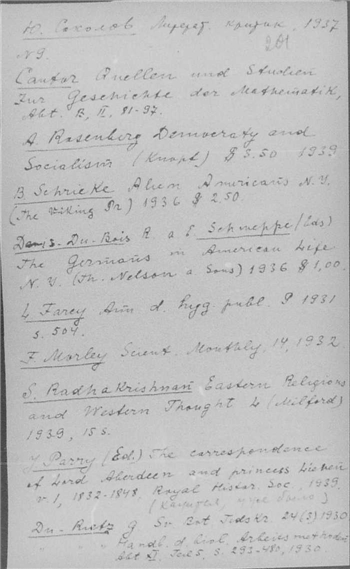 Ю. Соколов Литерат. критик, 1937
201
N 9.
Cantor Quellen und Studien
zur Geschichte der Mathematik,
Abt. B, II, 81-97.
A. Rosenberg Democraty and
Socialism (Knopf) $ 3.50 1939
B. Schrieke Alien Americans N.Y.
(The Viking Pr) 1936 $ 2.50.
Davis-Du-Bois R. a E. Schweppe (Eds)
The Germans in American Life
N.Y. (Th. Nelson a Sons) 1936 $ 1,00.
L Farcy Ann d. hyg. publ. 9 1931
s. 504.
F. Morley Scient. Monthly. 14, 1932.
S. Radhakrishnan Eastern Religions
and Western Thought L (Milford)
1939, 15 s.
Parry (Ed.) The correspondence
of Lord Aberdeen and princess Lieven
v. 1, 1832-1848, Royal Histor. Soc, 1939
Du-Rietz g Sv Bot Tidskr. 24(3) 1930
Handl. d. biol. Arbeitsmethoden
Abt XI, Teil 5, S. 293-480, 1930.